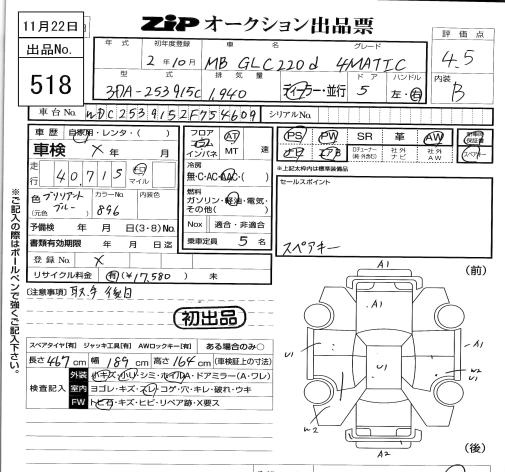 11月22日
ZIP オークション出品票
出品No.
518
年式 初年度登録 車名 グレード
2年10月 MB GLC220d 4MATIC
評価点
4.5
内装
B
型式 排気量 ドア ハンドル
3DA-253915C 1,940 ディーラー・並行 5 左・右
車台No. WDC2539152F754609 シリアルNo.
車歴 自家用・レンタ・( )
車検 × 年 月
走行 40,715 km マイル
色 ブリリアントブルー カラーNo. 896 内装色
(元色 )
予備検 年 月 日 (3・8) No.
書類有効期限 年 月 日迄
登録No. ×
リサイクル料金 有 (¥17,580) 未
フロア コラム インパネ AT MT 速
冷房
無・C・AC・AAC・( )
燃料
ガソリン・軽油・電気・その他( )
Nox 適合・非適合
乗車定員 5 名
PS PW SR 革 AW
社外ナビ 社外AW
スペアキー
※上記太枠内は標準装備品
セールスポイント
スペアキー
(注意事項) 取、手 後日
初出品
スペアタイヤ[有] ジャッキ工具[有] AWロックキー[有] ある場合のみ○
長さ 467 cm 幅 189 cm 高さ 164 cm (車検証上の寸法)
検査記入
外装 小キズ・小凹・シミ・ホイルA・ドアミラー(A・ワレ)
室内 ヨゴレ・キズ・スレ・コゲ・穴・キレ・破れ・ウキ
FW トビ石・キズ・ヒビ・リペア跡・X要ス
※ご記入の際はボールペンで強くご記入下さい。
(前)
A1
A1
U1
U1
W2
U1
W2
A2
(後)